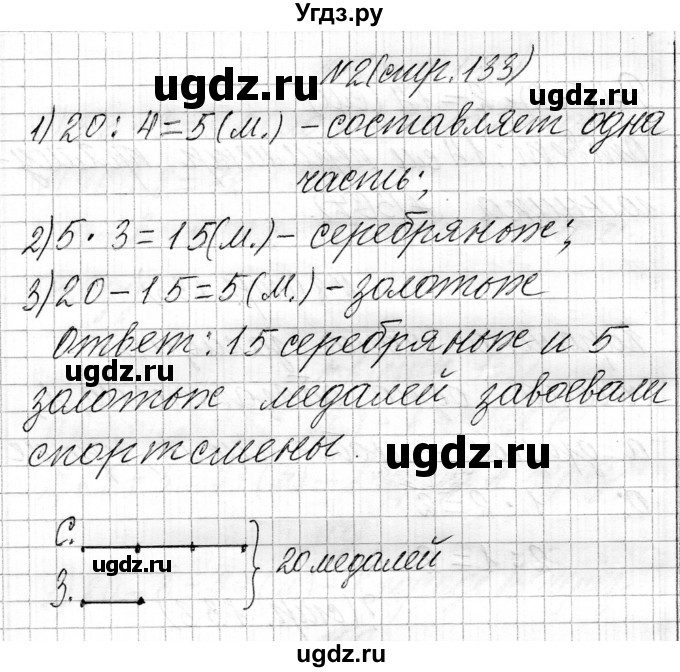 Угдз.ру
№2(стр.133)
ugdz.ru
ugdz.ru
1) 20 : 4 = 5 (м.) – составляет одна
часть;
2) 5 · 3 = 15 (м.) – серебряных;
3) 20 – 15 = 5 (м.) – золотых
Ответ: 15 серебряных и 5
ugdz.ru
золотых медалей завоевали
спортсмены.
ugdz.ru
С.
ugdz.ru
20 медалей
З.
ugdz.ru
ugdz.ru